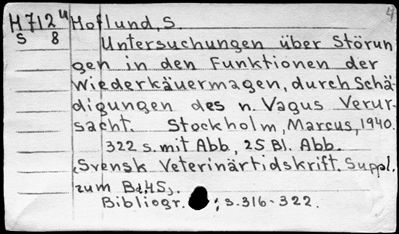 4
M 712 u Hoflund, S.
S 8
Untersuchungen über Störun
gen in den Funktionen der
Wiederkäuermagen, durch Schä
digungen des n. Vagus Verur-
sacht. Stockholm, Marcus, 1940.
322 s. mit Abb., 25 Bl. Abb.
(Svensk Veterinärtidskrift. Suppl.
zum Bd. 45).
Bibliogr. : s. 316-322.